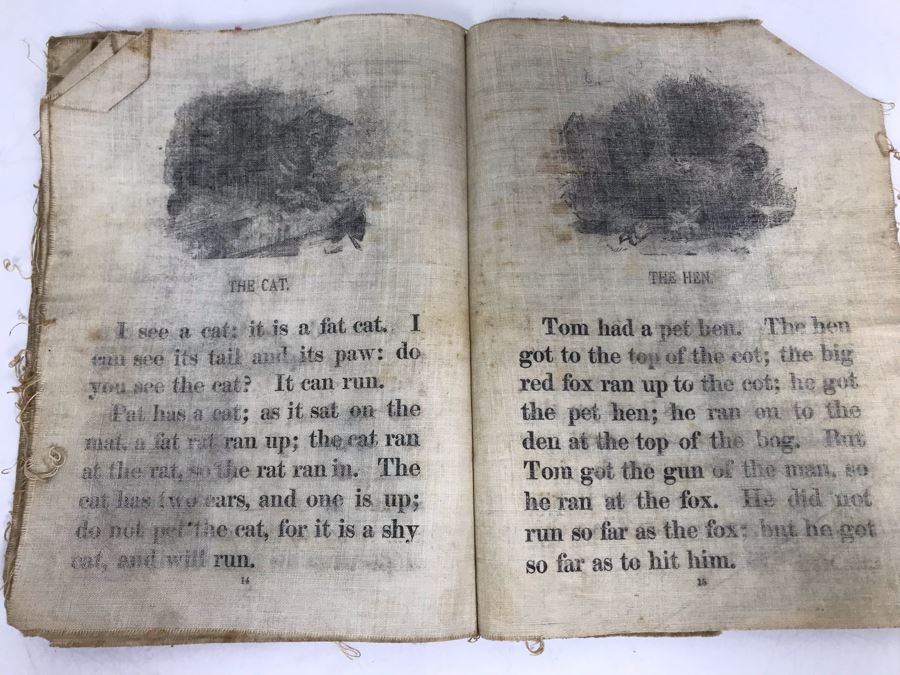 THE CAT.
I see a cat: it is a fat cat. I
can see its tail and its paw: do
you see the cat? It can run.
Pat has a cat; as it sat on the
mat, a fat rat ran up; the cat ran
at the rat, so the rat ran in. The
cat has two ears, and one is up;
do not pet the cat, for it is a shy
cat, and will run.
14
THE HEN.
Tom had a pet hen. The hen
got to the top of the cot; the big
red fox ran up to the cot; he got
the pet hen; he ran on to the
den at the top of the bog. But
Tom got the gun of the man, so
he ran at the fox. He did not
run so far as the fox; but he got
so far as to hit him.
15